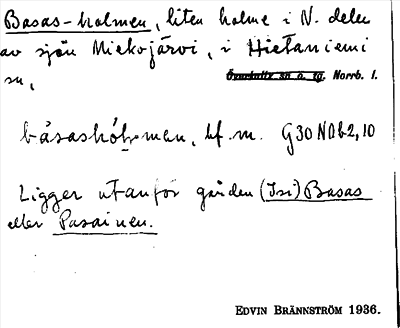 Basas-holmen, liten holme i N. delen
av sjön Miekojärvi, i Hietaniemi
sn,
Överkalix sn o. tg. Norrb. l.
båsashól̥men, bf. m. G30 NAb2,10
Ligger utanför gården (Isi) Basas
eller Pasainen.
EDVIN BRÄNNSTRÖM 1936.